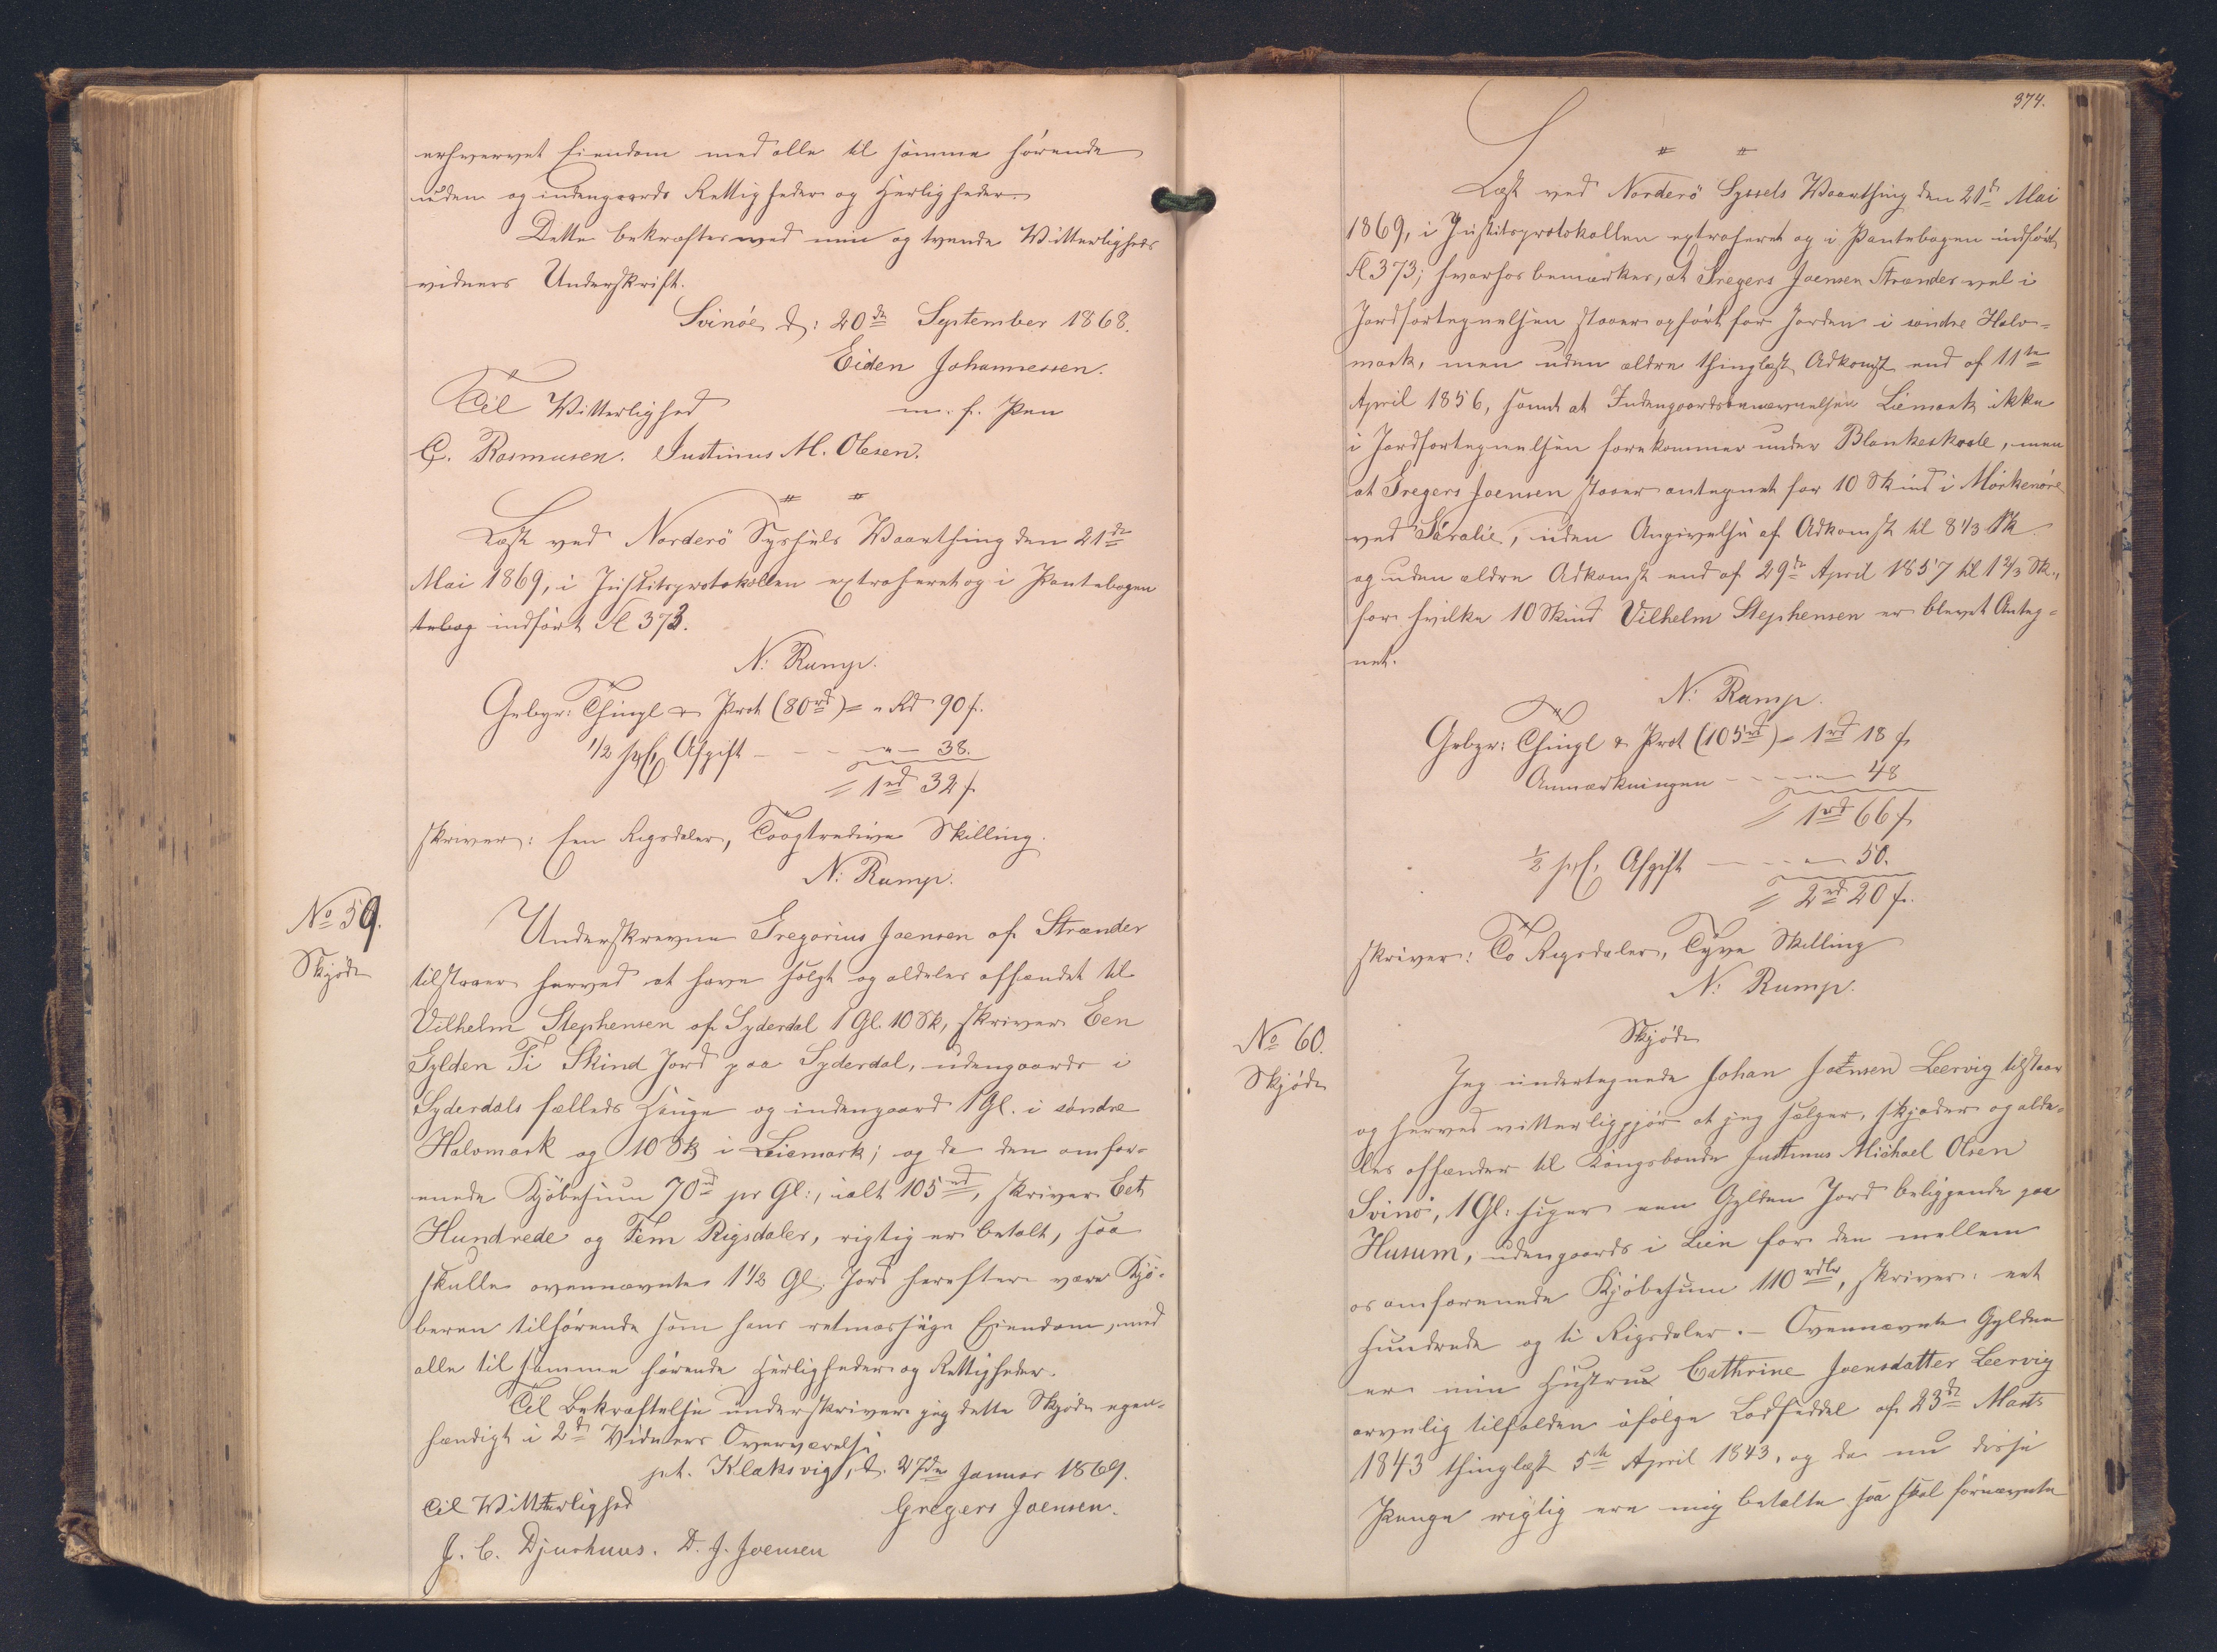 erhvervet Eiendom med alle til samme hørende
uden og indengaards Rettigheder og Herligheder.
Dette bekræftes ved min og tvende Vitterligheds
vidners Underskrift.
Svinöe, d: 20de September 1868.
Eiden Johannessen.
Til Vitterlighed
m. f. Pen
G. Rasmusen. Justinus M. Olesen.
Læst ved Norderö Syssels Vaarthing den 21de
Mai 1869, i Justitsprotokollen extraheret og i Pantebogen
tebog indført Fl 373.
N. Rump.
Gebyr: Thingl & Prot (80rd) = " Rd 90 s.
1/2 pCt. Afgift - - - " - 38.
= 1rd 32 s.
skriver: Een Rigsdaler, Toogtredive Skilling.
N. Rump.
No 59.
Skjøde
Underskrevne Gregorius Joensen af Strænder
tilstaaer herved at have solgt og aldeles afhændet til
Vilhelm Stephensen af Syderdal 1 Gl. 10 Sk, skriver Een
Gylden Ti Skind Jord paa Syderdal, udengaards i
Syderdals fælleds Hauge og indengaard 1 Gl. i søndre
Halvmark og 10 Sk i Leiemark; og da den omfor-
enede Kjöbesum 70rd pr Gl:, ialt 105rd, skriver Eet
Hundrede og Fem Rigsdaler, rigtig er betalt, saa
skulle ovennævnte 1 1/2 Gl. Jord herefter være Kjö-
beren tilhørende som hans retmæssige Eiendom, med
alle til samme hørende Herligheder og Rettigheder.
Til Bekræftelse underskriver jeg dette Skjøde egen-
hændigt i 2de Vidners Overværelse
pt. Klaksvig, d. 27de Januar 1869.
Til Vitterlighed
Gregers Joensen.
J. C. Djurhuus. D. J. Joensen
374.
Læst ved Norderö Syssels Vaarthing den 21de Mai
1869, i Justitsprotokollen extraheret og i Pantebogen indført
Fl 373; hvorhos bemærkes, at Gregers Joensen Strænder vel i
Jordfortegnelsen staaer opført for Jorden i søndre Halv-
mark, men uden ældre thinglæst Adkomst end af 11te
April 1856, samt at Indengaardsbenævnelsen Liemark ikke
i Jordfortegnelsen forekommer under Blankeskaale, men
at Gregers Joensen staaer antegnet for 10 Skind i Mörkenöre
ved Såralie, uden Angivelse af Adkomst til 8 1/3 Sk
og uden ældre Adkomst end af 29de April 1857 til 1 2/3 Sk.,
for hvilke 10 Skind Vilhelm Stephensen er blevet Anteg-
net.
N. Rump.
Gebyr: Thingl & Prot (105rd) = 1rd 18 s.
Anmærkningen - - - 48
= 1rd 66 s.
1/2 pCt. Afgift - - - 50.
= 2rd 20 s.
skriver: To Rigsdaler, Tyve Skilling
N. Rump.
No 60.
Skjøde
Skjøde
Jeg undertegnede Johan Joensen Leervig tilstaar
og herved vitterliggjør at jeg sælger, skjøder og alde-
les afhænder til Kongsbonde Justinus Michael Olsen
Svinö, 1 Gl: siger een Gylden Jord beliggende paa
Husum, udengaards i Lien for den mellem
os omforenede Kjöbesum 110 rdlr, skriver: eet
hundrede og ti Rigsdaler. - Ovennævnte Gylden
er min Hustrue Cathrine Joensdatter Leervig
arvelig tilfalden ifølge Lodseddel af 23de Marts
1843 thinglæst 5te April 1843, og da nu disse
Penge rigtig ere mig betalte saa skal fornævnte